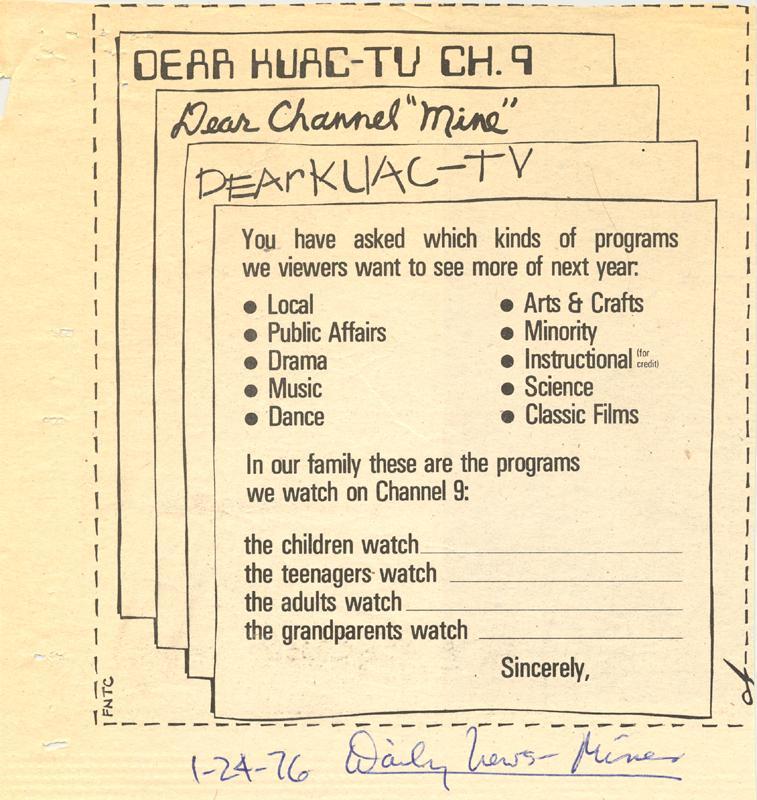 DEAR KUAC-TV CH. 9
Dear Channel "Mine"
DEAr KUAC-TV
You have asked which kinds of programs
we viewers want to see more of next year:
● Local
● Public Affairs
● Drama
● Music
● Dance
● Arts & Crafts
● Minority
● Instructional (for credit)
● Science
● Classic Films
In our family these are the programs
we watch on Channel 9:
the children watch
the teenagers watch
the adults watch
the grandparents watch
Sincerely,
FNTC
1-24-76 Daily News-Miner